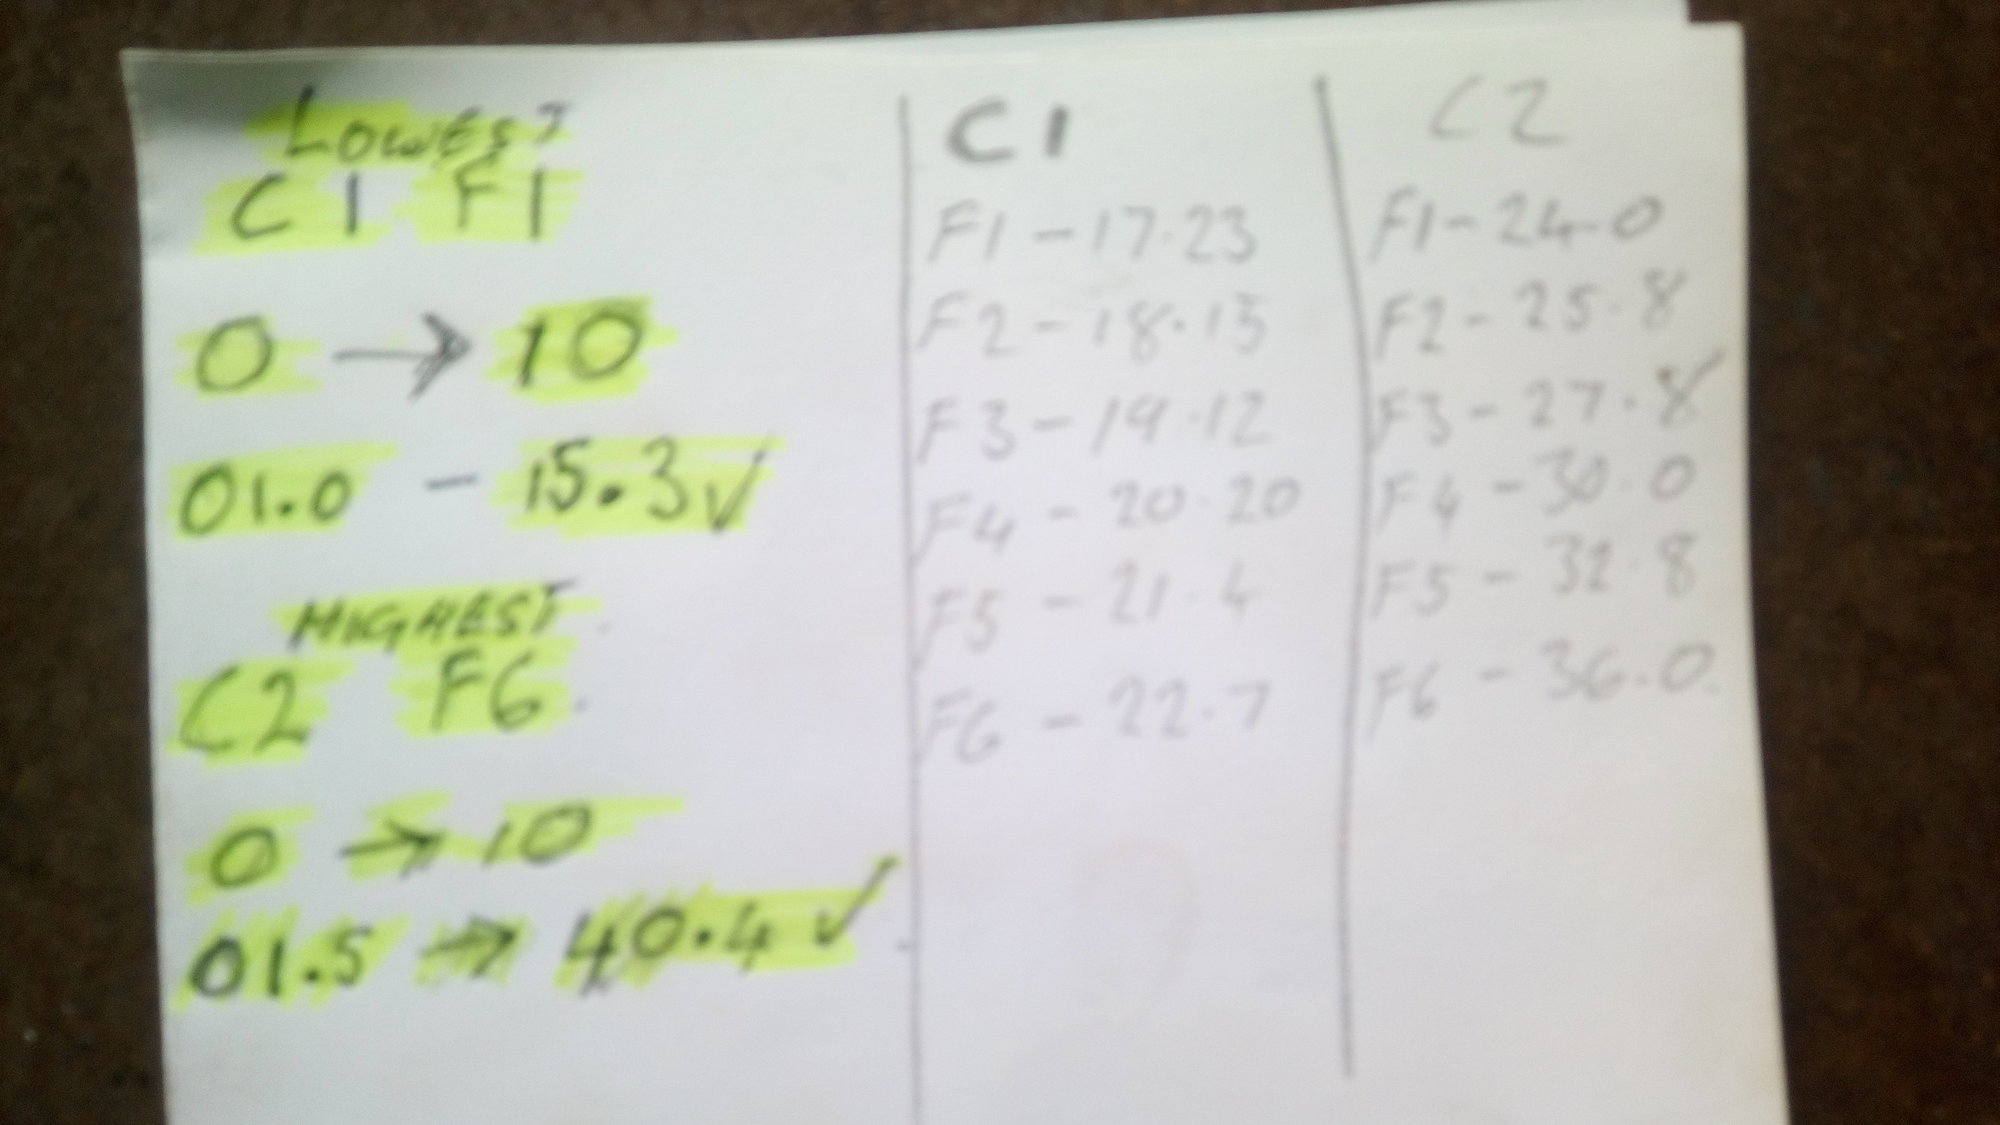 LOWEST
C1 F1
0 → 10
01.0 - 15.3 ✓
HIGHEST.
C2 F6.
0 → 10
01.5 → 40.4 ✓.
C1
F1 - 17.23
F2 - 18.15
F3 - 19.12
F4 - 20.20
F5 - 21.4
F6 - 22.7
C2
F1 - 24.0
F2 - 25.8
F3 - 27.8
F4 - 30.0
F5 - 32.8
F6 - 36.0.